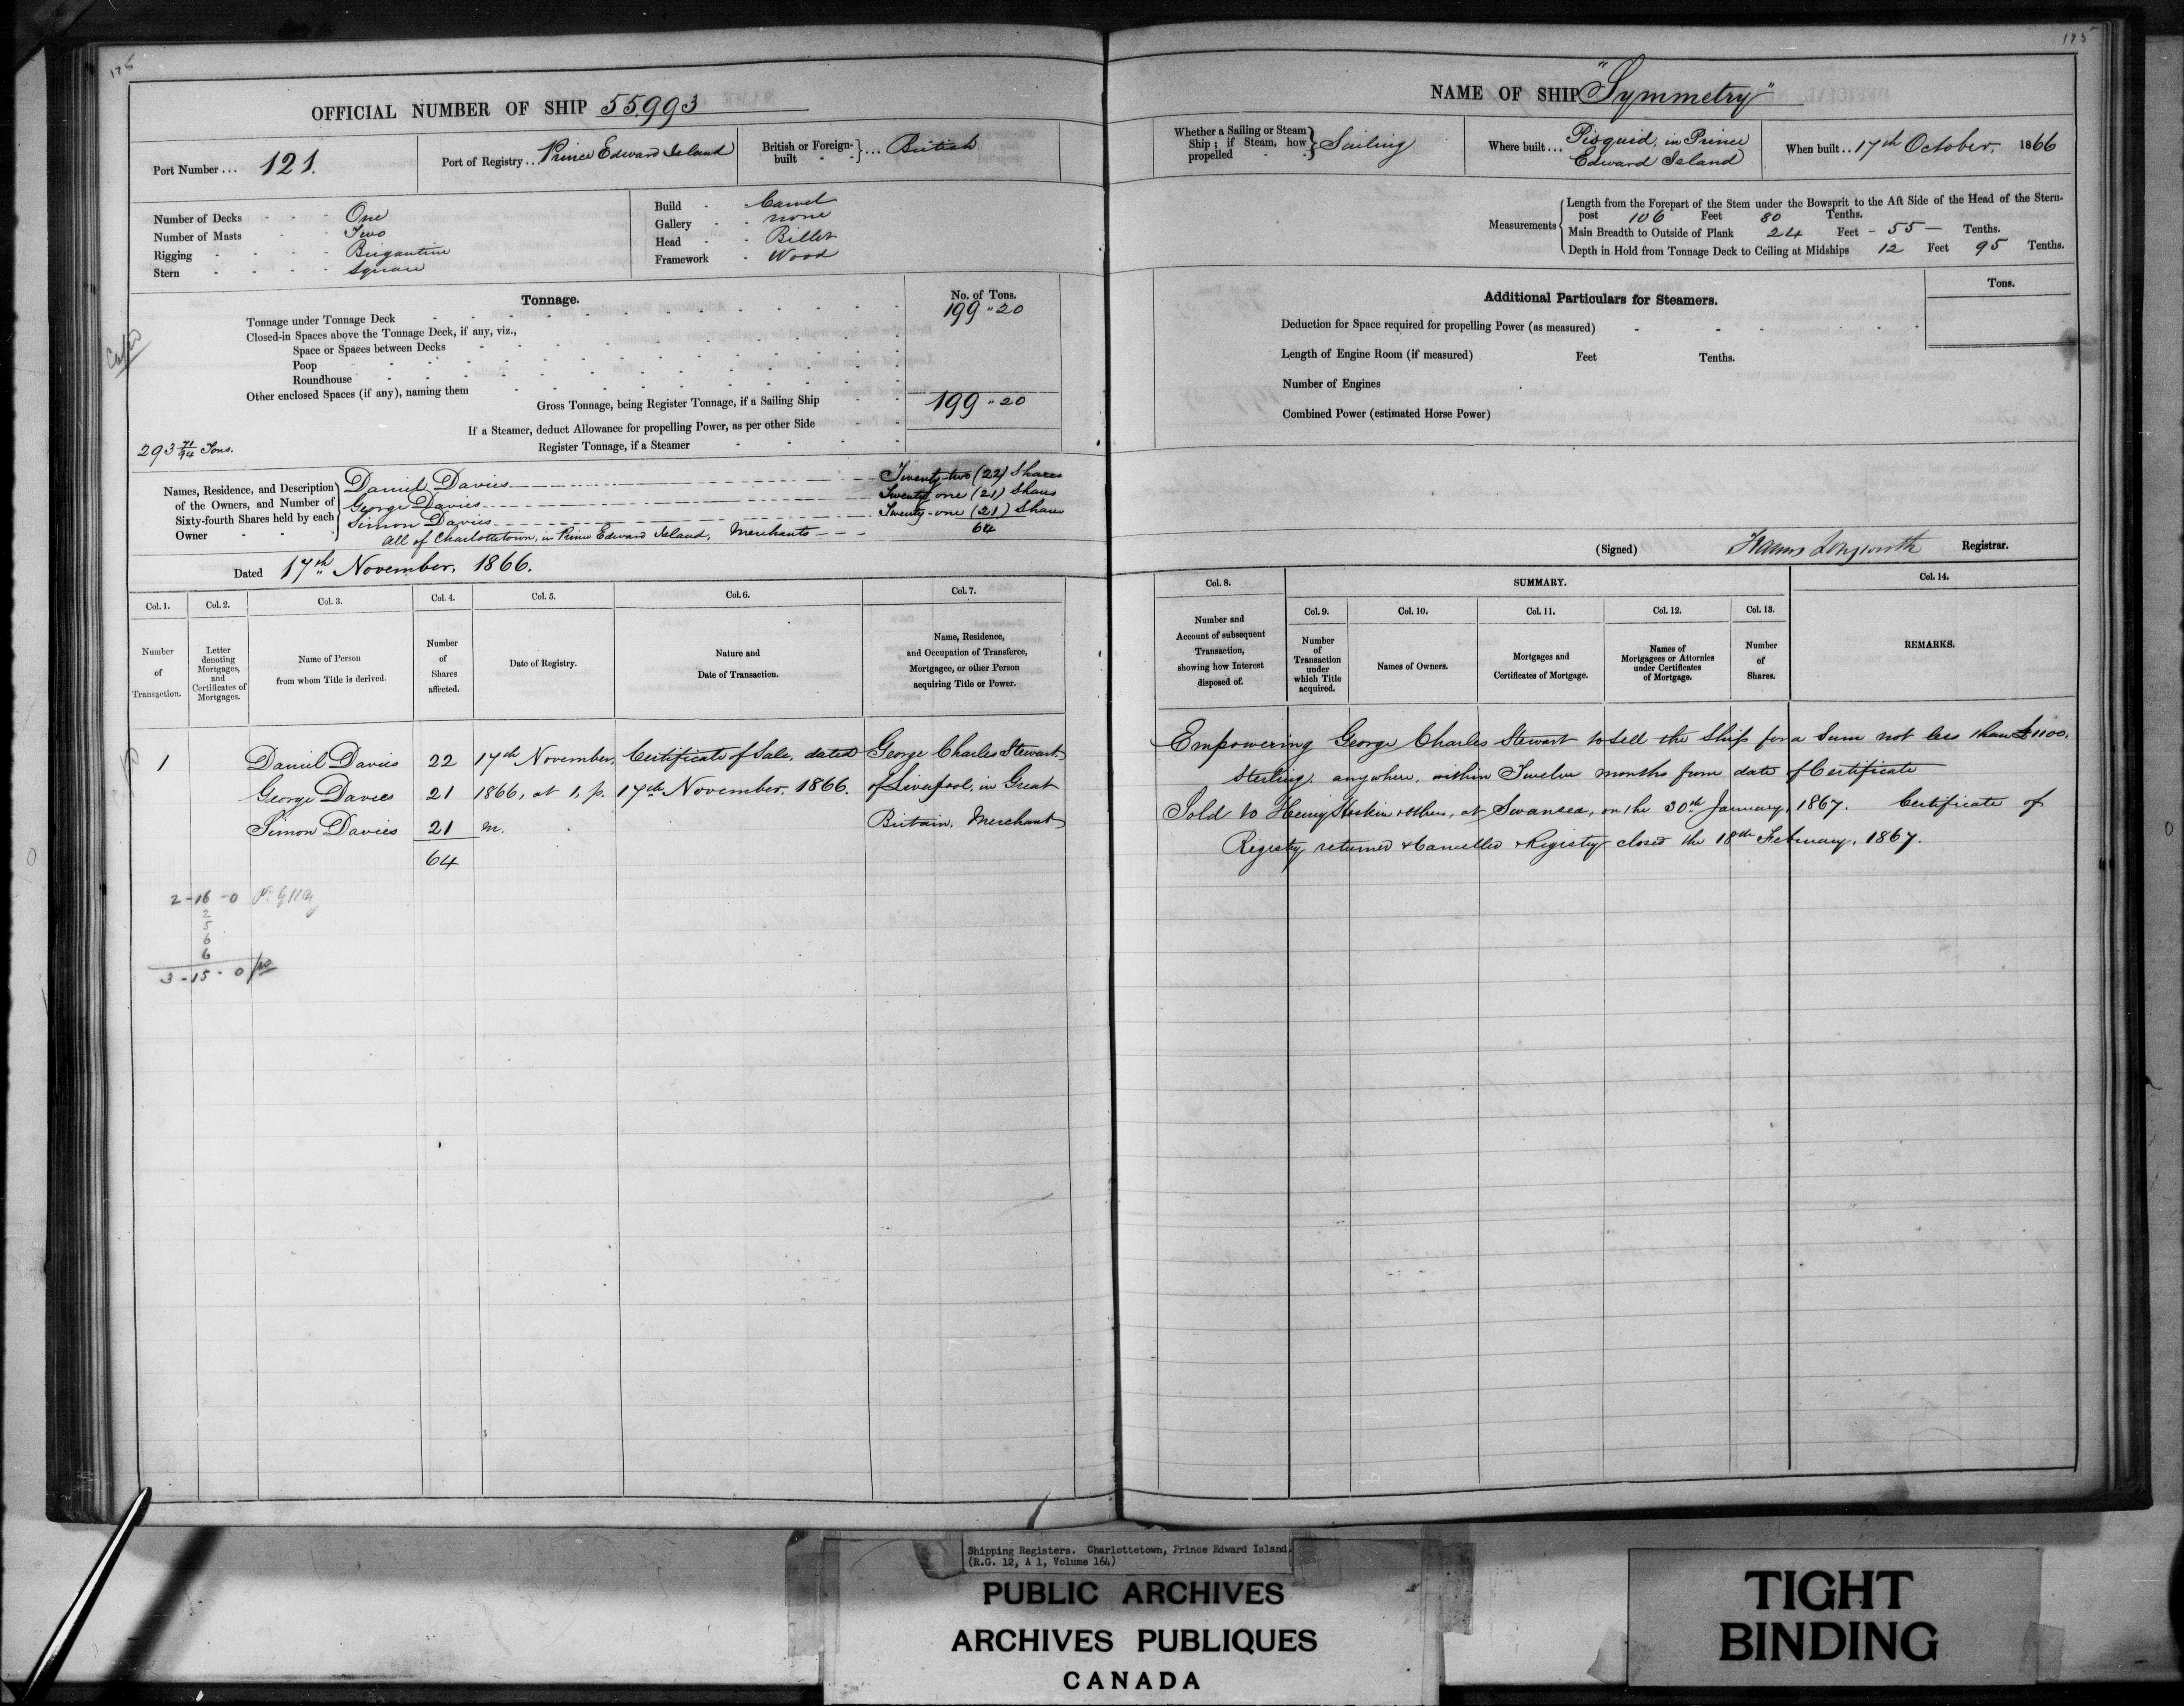 175
OFFICIAL NUMBER OF SHIP 55,993
Port Number ... 121.
Port of Registry ... Prince Edward Island
British or Foreign-built - - } ... British
Number of Decks - - - One
Number of Masts - - Two
Rigging - - - - Brigantine
Stern - - - - Square
Build - - Carvel
Gallery - - none
Head - - Billet
Framework - Wood
Tonnage.
No. of Tons.
Tonnage under Tonnage Deck 199 " 20
Closed-in Spaces above the Tonnage Deck, if any, viz.,
Space or Spaces between Decks
Poop
Roundhouse
Other enclosed Spaces (if any), naming them
Gross Tonnage, being Register Tonnage, if a Sailing Ship 199 " 20
If a Steamer, deduct Allowance for propelling Power, as per other Side
Register Tonnage, if a Steamer
293 71/94 Tons.
Names, Residence, and Description of the Owners, and Number of Sixty-fourth Shares held by each Owner
Daniel Davies Twenty-two (22) Shares
George Davies Twenty one (21) Shares
Simon Davies Twenty-one (21) Shares
All of Charlottetown, in Prince Edward Island, Merchants 64
Dated 17th November, 1866.
Col. 1. Col. 2. Col. 3. Col. 4. Col. 5. Col. 6. Col. 7.
Number of Transaction.
Letter denoting Mortgages, and Certificates of Mortgages.
Name of Person from whom Title is derived.
Number of Shares affected.
Date of Registry.
Nature and Date of Transaction.
Name, Residence, and Occupation of Transferee, Mortgagee, or other Person acquiring Title or Power.
1 Daniel Davies 22 17th November, Certificate of Sale, dated George Charles Stewart
George Davies 21 1866, at 1, p. 17th November. 1866. of Liverpool, in Great
Simon Davies 21 m. Britain, Merchant
64
2-16-0
2
5
6
6
3-15-0
175
NAME OF SHIP "Symmetry"
Whether a Sailing or Steam Ship; if Steam, how propelled - - } Sailing
Where built ... Pisquid, in Prince Edward Island
When built .. 17th October, 1866
Measurements
Length from the Forepart of the Stem under the Bowsprit to the Aft Side of the Head of the Stern-
post 106 Feet 80 Tenths.
Main Breadth to Outside of Plank 24 Feet - 55 - Tenths.
Depth in Hold from Tonnage Deck to Ceiling at Midships 12 Feet 95 Tenths.
Additional Particulars for Steamers.
Tons.
Deduction for Space required for propelling Power (as measured)
Length of Engine Room (if measured) Feet Tenths.
Number of Engines
Combined Power (estimated Horse Power)
(Signed) Longworth Registrar.
Col. 8. SUMMARY. Col. 14.
Col. 9. Col. 10. Col. 11. Col. 12. Col. 13.
Number and Account of subsequent Transaction, showing how Interest disposed of.
Number of Transaction under which Title acquired.
Names of Owners.
Mortgages and Certificates of Mortgage.
Names of Mortgagees or Attornies under Certificates of Mortgage.
Number of Shares.
REMARKS.
Empowering George Charles Stewart to sell the Ship for a Sum not less than £1100,
Sterling, anywhere, within Twelve months from date of Certificate
Sold to Henry Hoskin & others, at Swansea, on the 30th January, 1867. Certificate of
Registry returned & Cancelled & Registry closed the 18th February, 1867.
Shipping Registers. Charlottetown, Prince Edward Island.
(R.G. 12, A 1, Volume 164)
PUBLIC ARCHIVES
ARCHIVES PUBLIQUES
CANADA
TIGHT
BINDING